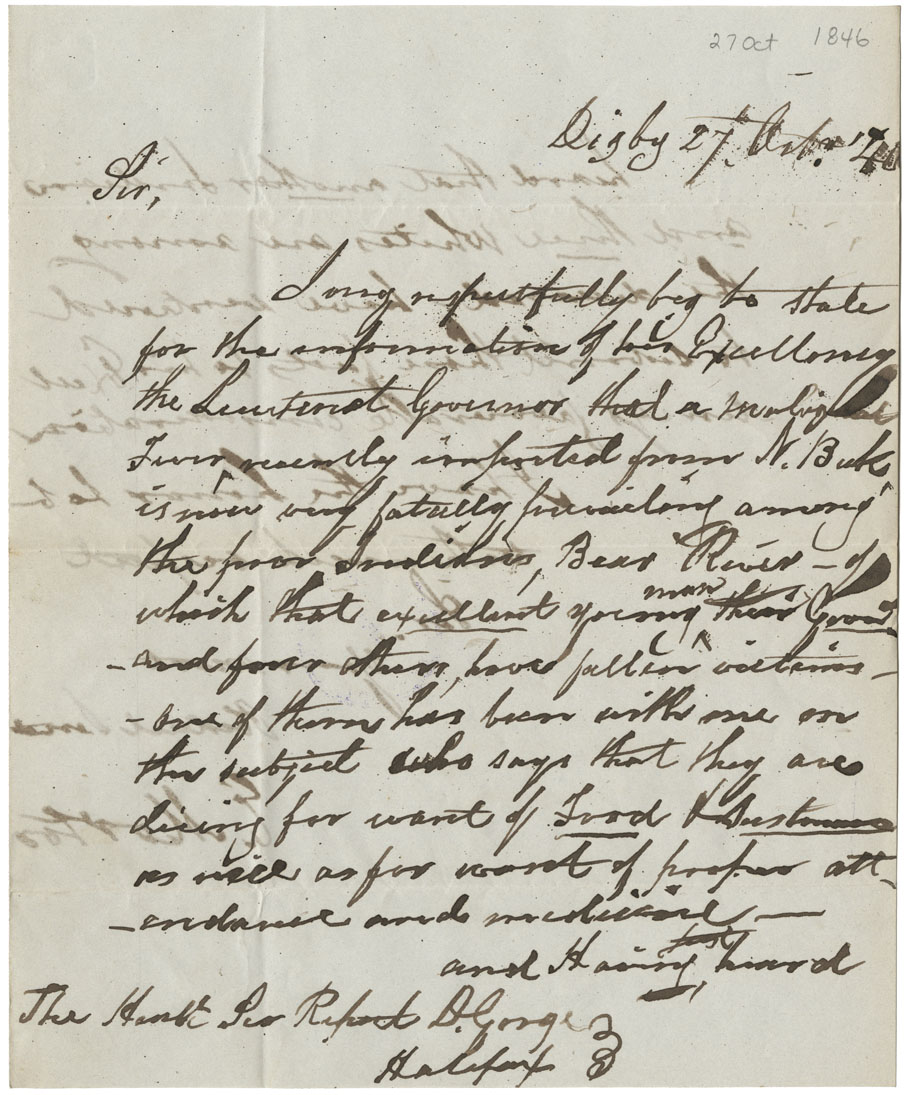 27 Oct 1846
Digby 27th Octbr. '46
Sir,
I may respectfully beg to state
for the information of his Excellency
the Lieutenant Governor that a malignant
Fever recently imported from N. Bck
is now very fatally prevailing among
the poor Indians, Bear River – of
which that excellent young man
– and four others, have fallen victims –
– one of them has been with me on
the subject who says that they are
dieing for want of Food & Sustenance
as well as for want of proper att–
–endance and medicine —
and Having just heard
The Honble Sir Rupert D. George
Halifax